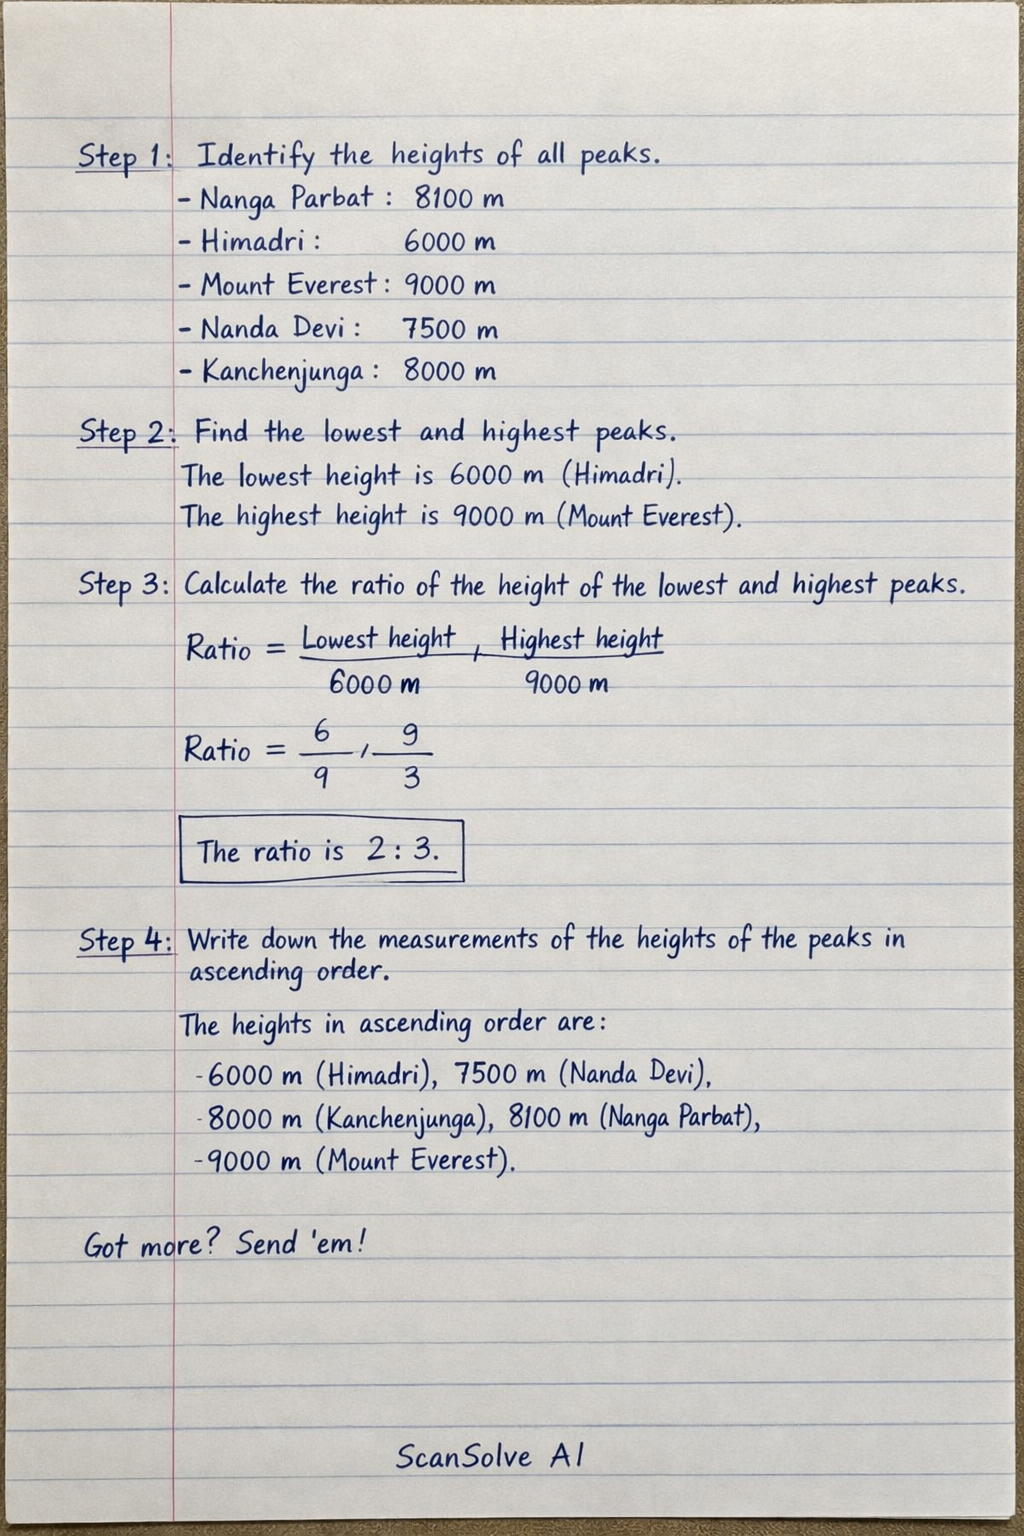 Step 1: Identify the heights of all peaks.
- Nanga Parbat : 8100 m
- Himadri : 6000 m
- Mount Everest : 9000 m
- Nanda Devi : 7500 m
- Kanchenjunga : 8000 m
Step 2: Find the lowest and highest peaks.
The lowest height is 6000 m (Himadri).
The highest height is 9000 m (Mount Everest).
Step 3: Calculate the ratio of the height of the lowest and highest peaks.
Ratio = Lowest height , Highest height
6000 m 9000 m
Ratio = 6/9 , 9/3
The ratio is 2 : 3.
Step 4: Write down the measurements of the heights of the peaks in
ascending order.
The heights in ascending order are:
- 6000 m (Himadri), 7500 m (Nanda Devi),
- 8000 m (Kanchenjunga), 8100 m (Nanga Parbat),
- 9000 m (Mount Everest).
Got more? Send 'em!
ScanSolve AI